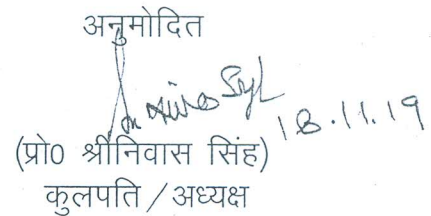 अनुमोदित
18.11.19
(प्रो0 श्रीनिवास सिंह)
कुलपति / अध्यक्ष